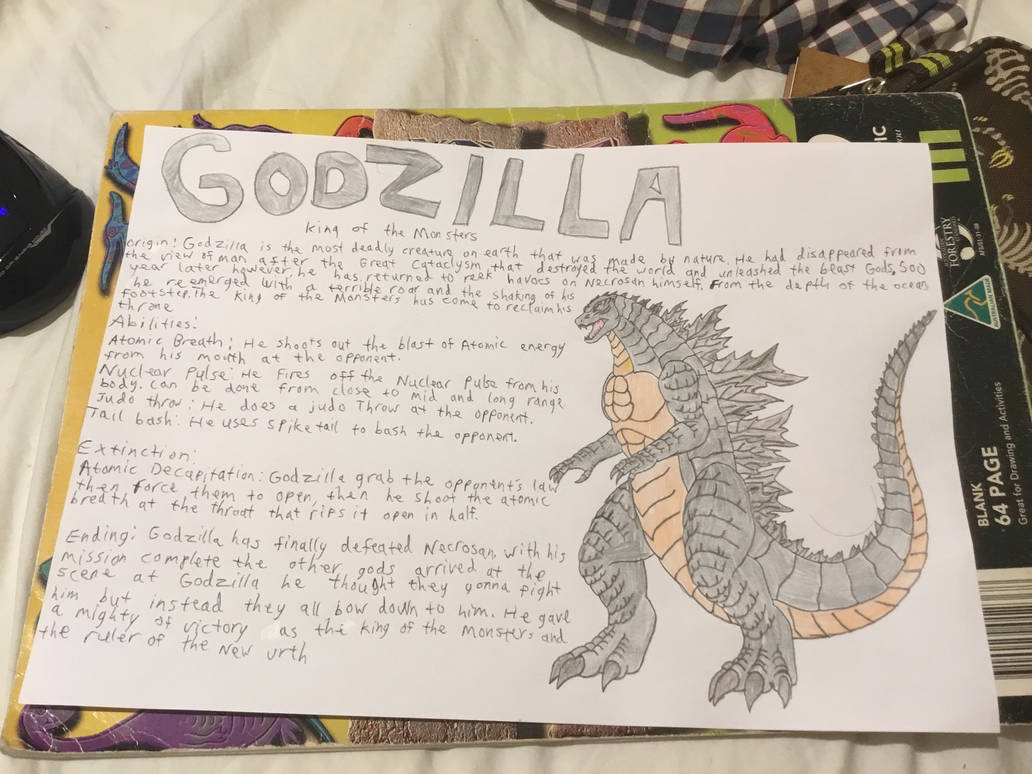 GODZILLA
King of the Monsters
origin: Godzilla is the most deadly creature on earth that was made by nature. He had disappeared from
the view of man after the Great Cataclysm that destroyed the world and unleashed the beast Gods, 500
year later however, he has returned to reek havocs on Necrosan himself. From the depth of the ocean
he reemerged with a terrible roar and the shaking of his
footstep. The King of the Monsters has come to reclaim his
throne
Abilities:
Atomic Breath: He shoots out the blast of Atomic energy
from his mouth at the opponent.
Nuclear Pulse: He Fires off the Nuclear Pulse from his
body. Can be done from close to mid and long range
Judo throw: He does a judo Throw at the opponent.
Tail bash: He uses spike tail to bash the opponent.
Extinction:
Atomic Decapitation: Godzilla grab the opponent's Jaw
then force them to open, then he shoot the atomic
breath at the throat that rips it open in half.
Ending: Godzilla has finally defeated Necrosan, with his
mission complete the other gods arrived at the
scene at Godzilla he thought they gonna fight
him but instead they all bow down to him. He gave
a mighty of victory as the King of the Monsters and
the ruler of the New Urth
FORESTRY
BLANK
64 PAGE
Great for Drawing and Activities